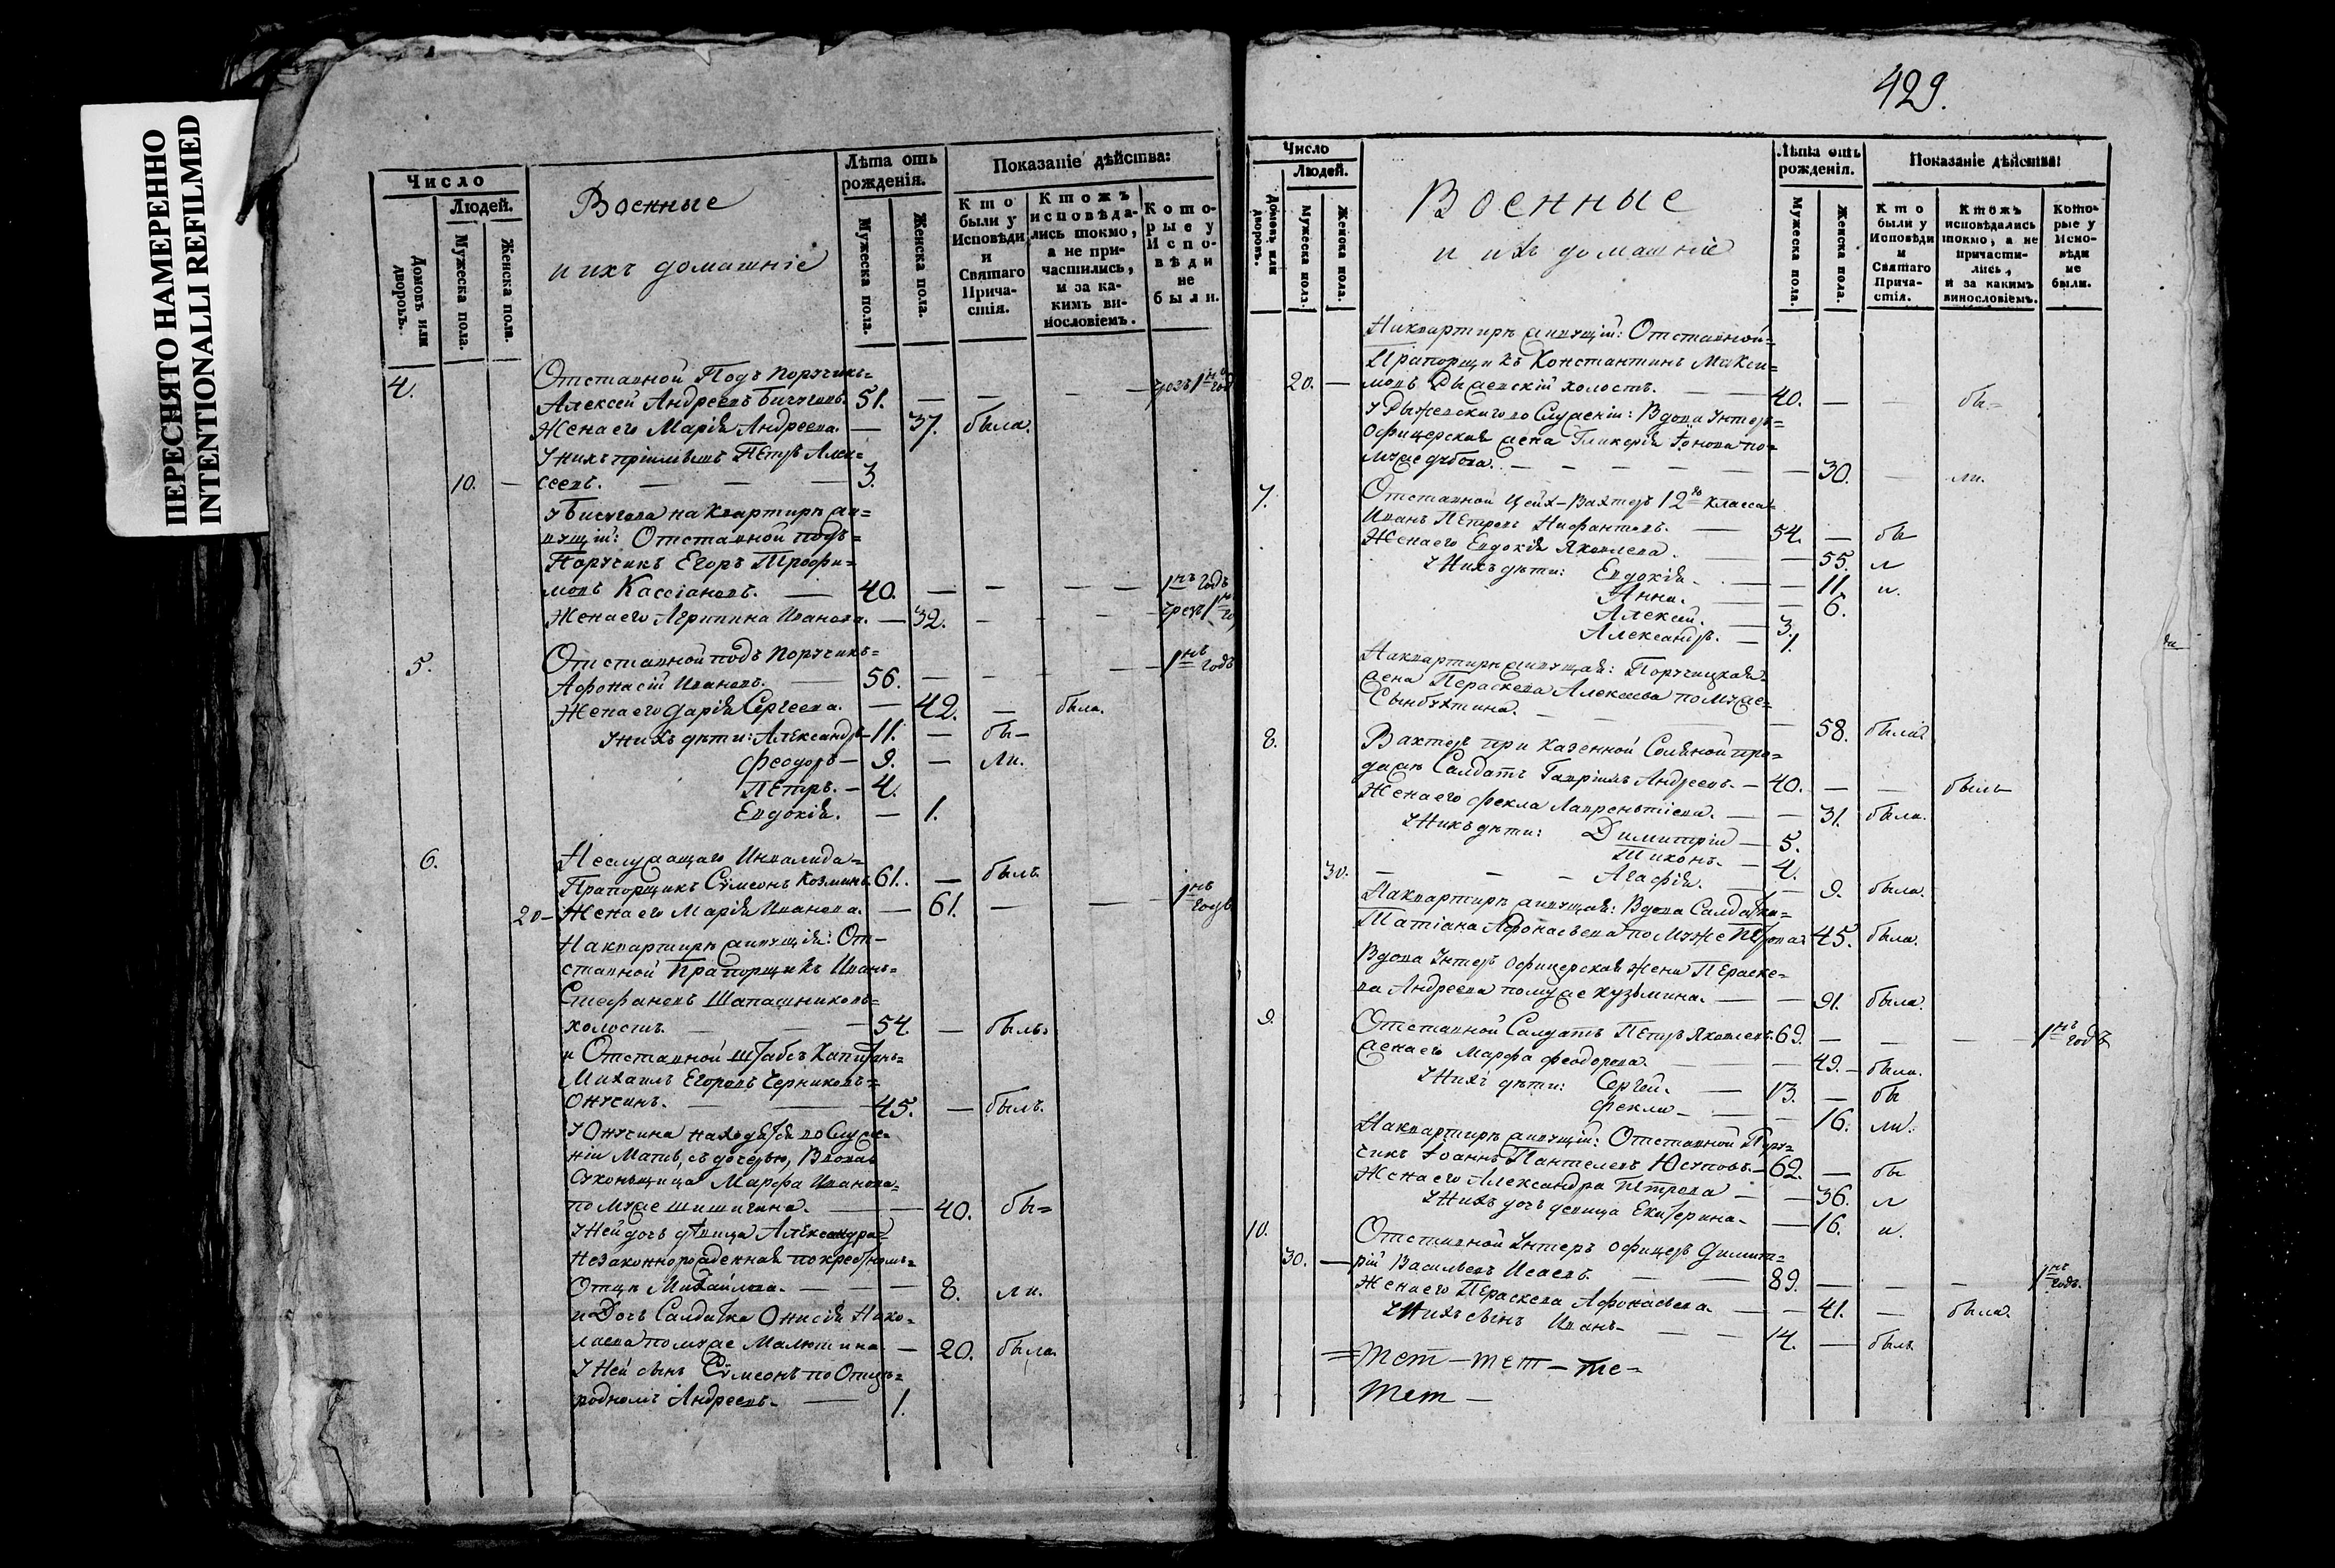 ПЕРЕСНЯТО НАМЕРЕННО
INTENTIONALLI REFILMED
Число
Людей.
Домовъ или дворовъ.
Мужеска пола.
Женска пола.
Военные
и ихъ домашніе
Лѣта отъ рожденія.
Мужеска пола.
Женска пола.
Показаніе дѣйства:
Кто были у Исповѣди и Святаго Причастія.
Ктожъ исповѣдались токмо, а не причастились, и за какимъ винословіемъ.
Которые у Исповѣди не были.
4. Отставной Подъ Поручикъ=
Алексей Андреевъ 51. — — — 1нъ год
Жена его Марія Андреева. — 37. была.
У нихъ Пётръ Алек=
10. — сеевъ. — — — 3.
у на квартирѣ жи=
вущій: Отставной подъ=
Поручикъ Егоръ Трофи=
мовъ Кассіановъ. — 40. — — — — 1нъ годъ
Жена его Агрипина Иванова. — 32. - - - чрезъ 1нъ го
5. Отставной подъ Поручикъ=
Афонасій Ивановъ. — 56. — — — — 1нъ годъ
Жена его Дарія Сергеева. — 42. — была.
У нихъ дѣти: Александръ — 11. — бы-
Феодоръ — 9. — ли.
Пётръ. — 4.
Евдокія. — 1.
6. Неслужащаго Инвалида=
Прапорщикъ Сѵмеонъ Козминъ 61. — былъ
20 - Жена его Марія Иванова. — 61. — — 1нъ годъ
На квартирѣ живущія: От-
ставной Прапорщикъ Иванъ=
Стефановъ Шапашниковъ=
холостъ. — — — 54 — былъ.
и Отставной штабсъ Капитанъ=
Михаилъ Егоровъ Черниковъ=
Онучинъ. — — 45. — былъ.
У Онучина находятся во служе-
ніи Мать, съ дочерью, Вдова
Марфа Иванова=
по мужѣ Шишигина. — — 40. бы=
У Ней дочь дѣвица Александра
Незаконнорожденная по крестномъ=
Отцѣ Михайлова. — — — 8. ли.
и Дочь Салдатка Онисія Нико-
лаева по мужѣ Малютина — 20. была.
У Ней сынъ Сѵмеонъ по Отцѣ=
родномъ Андреевъ. — 1.
429.
Число
Людей.
Домовъ или дворовъ.
Мужеска пола.
Женска пола.
Военные
и ихъ домашніе
Лѣта отъ рожденія.
Мужеска пола.
Женска пола.
Показаніе дѣйства:
Кто были у Исповѣди и Святаго Причастія.
Ктожъ исповѣдались токмо, а не причастились, и за какимъ винословіемъ.
Которые у Исповѣди не были.
На квартирѣ живущій: Отставной=
Прапорщикъ Константинъ Макси=
20. — мовъ холостъ. — — 40. — — бы=
У во Служеніи: Вдова Унтеръ=
Офицерская жена Гликерія Іонова по=
мужѣ — — — — — 30. — ли.
7. Отставной Цейх-Вахтеръ 12го класса
Иванъ Петровъ Нифантовъ. — 54. — бы
Жена его Евдокія Яковлева. — — 55. л
У Нихъ дѣти: Евдокія. — — 11. и.
Анна. — — 6.
Алексей. — 3.
Александръ. — 1.
На квартирѣ живущая: Поручицкая
жена Пераскева Алексеева по мужѣ=
— — — 58. была
8. Вахтеръ при казенной Соляной про=
дажѣ Салдатъ Гавріилъ Андреевъ. — 40. — — былъ
Жена его Фекла Лаврентіева. — — 31. была.
У Нихъ дѣти: Димитрій — 5.
Тихонъ. — 4.
30. — — — Агафія. — — 9. была.
На квартирѣ живущая: Вдова Салдатка=
Татіана Афонасьева по мужѣ Петрова 45. была.
Вдова Унтеръ Офицерская Жена Пераске=
ва Андреева по мужѣ Кузьмина. — — 91. была.
9. Отставной Салдатъ Петръ Яковлевъ. 69. — — — — 1нъ годъ
Жена его Марфа Феодорова. — — 49. — была.
У Нихъ дѣти: Сергей. — 13. — бы
Фекла — — — 16. ли.
На квартирѣ живущій: Отставной Пору=
чикъ Іоаннъ Пантелевъ Юсуповъ. — 62. — бы
Жена его Александра Петрова — — 36. л
У Нихъ дочь девица Екатерина. — 16. и.
10. Отставной Унтеръ офицеръ Димит=
30. — рій Васильевъ Исаевъ. — — 89. — — — 1нъ годъ.
Жена его Пераскева Афонасьева. — — 41. — была.
У Нихъ сынъ Иванъ — — — 14. — былъ.